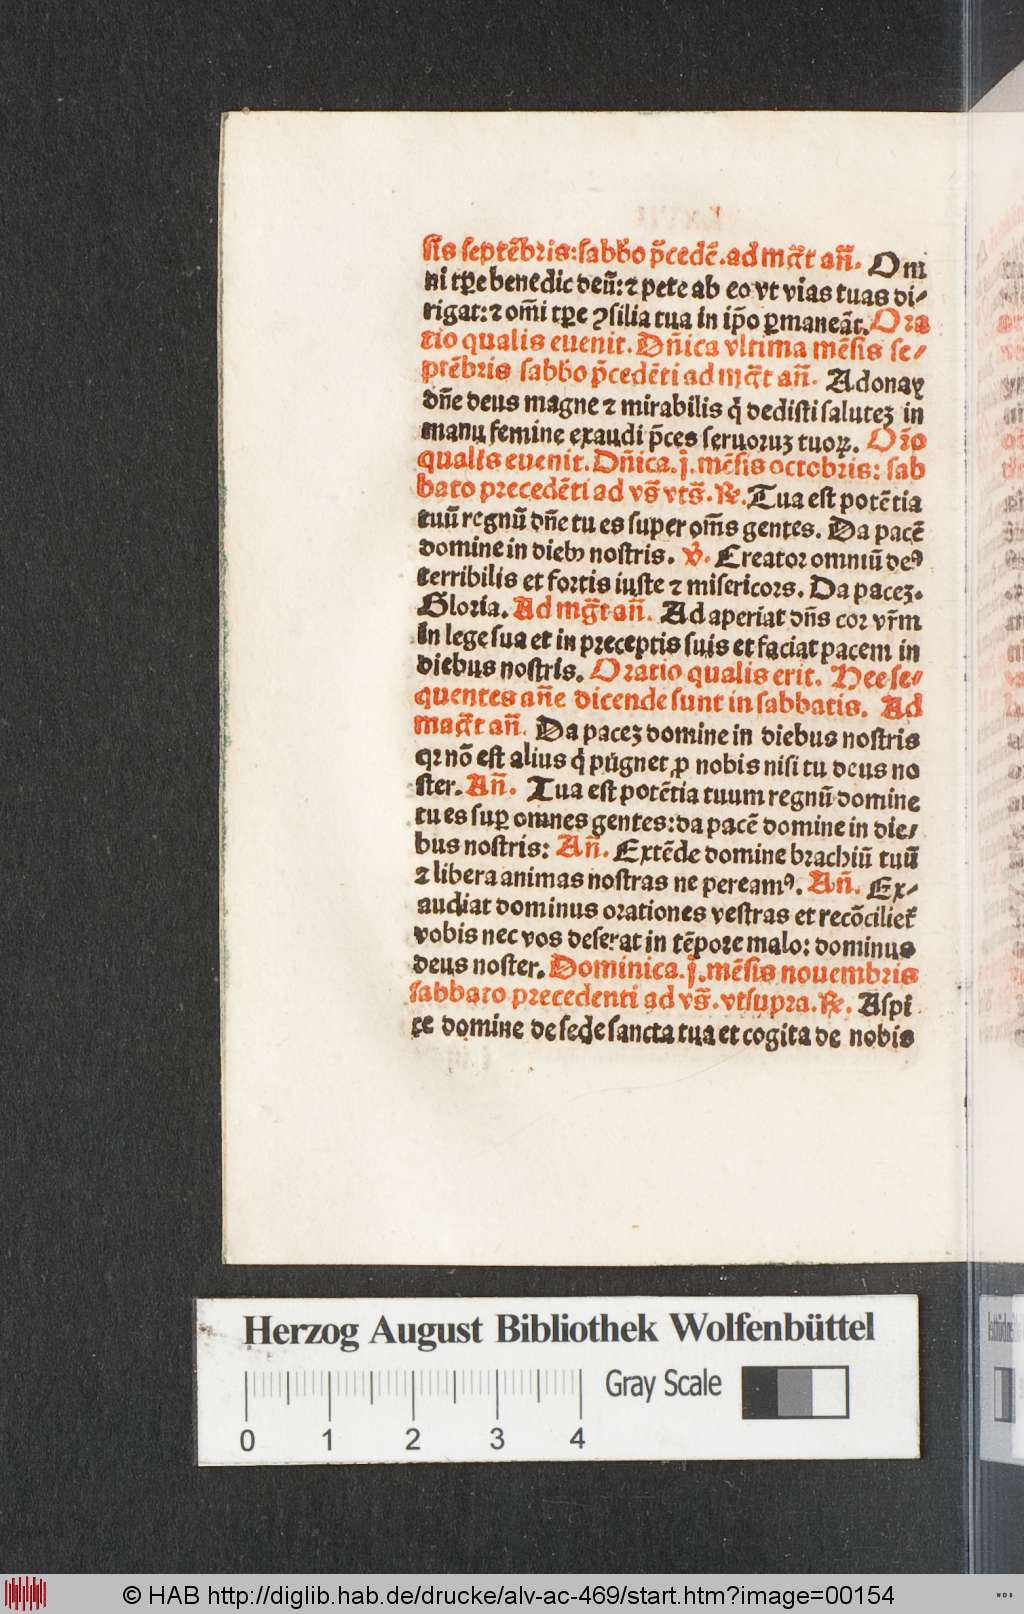 sis septēbris: sabb̄o p̄cedē. ad mag̅t añ. Om
ni tp̄re benedic deū: ⁊ pete ab eo vt vias tuas di⸗
rigat: ⁊ om̄i tp̄re ꝯsilia tua in ip̄o ꝑmaneāt. Ora
tio qualis euenit. Dñica vltima mēsis se⸗
ptēbris sabb̄o p̄cedēti ad mag̅t añ. Adonay
dñe deus magne ⁊ mirabilis q̇ dedisti saluteʒ in
manu femine exaudi p̄ces seruoruʒ tuoꝝ. Or̄o
qualis euenit. Dñica. j. mēsis octobris: sab
bato precedēti ad vs̄ vts̄. ℟. Tua est potētia
tuū regnū dñe tu es super om̄s gentes. Da pacē
domine in dieb⁹ nostris. ℣. Creator omniū de⁹
terribilis et fortis iuste ⁊ misericors. Da paceʒ.
Gloria. Ad mg̅t añ. Ad aperiat dñs cor vr̄m
in lege sua et in preceptis suis et faciat pacem in
diebus nostris. Oratio qualis erit. Hee se⸗
quentes añe dicende sunt in sabbatis. Ad
mag̅t añ. Da paceʒ domine in diebus nostris
qꝛ nō est alius q̇ pūgnet ꝓ nobis nisi tu deus no
ster. Añ. Tua est potētia tuum regnū domine
tu es suꝑ omnes gentes: da pacē domine in die⸗
bus nostris: Añ. Extēde domine brachiū tuū
⁊ libera animas nostras ne peream⁹. Añ. Ex⸗
audiat dominus orationes vestras et recōciliet̄
vobis nec vos deserat in tēpore malo: dominus
deus noster. Dominica. j. mēsis nouembris
sabbato precedenti ad vs̄. vtsupra. ℟. Aspi
ce domine de sede sancta tua et cogita de nobis
Herzog August Bibliothek Wolfenbüttel
Gray Scale
0 1 2 3 4
© HAB http://diglib.hab.de/drucke/alv-ac-469/start.htm?image=00154